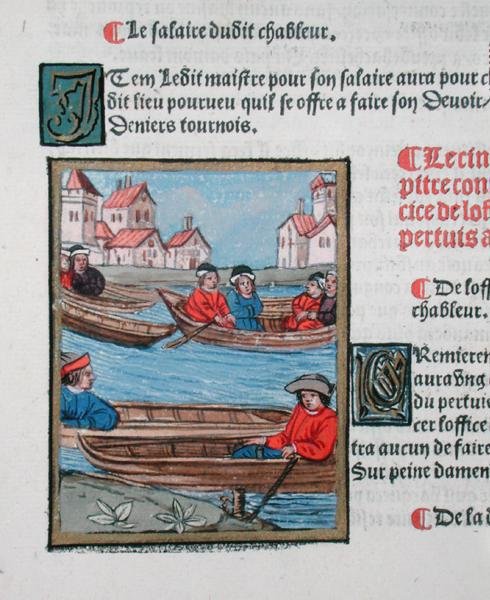 ¶ Le salaire dudit chableur.
Item Ledit maistre pour son salaire aura pour c
dit lieu pourueu quil se offre a faire son Deuoir/
Deniers tournois.
¶ Le cin
pitre con
cice de lof
pertuis a
¶ De loff
chableur.
PRemieren
aura Vng
du pertuis
cer loffice
tra aucun de faire
Sur peine damen
¶ De la d